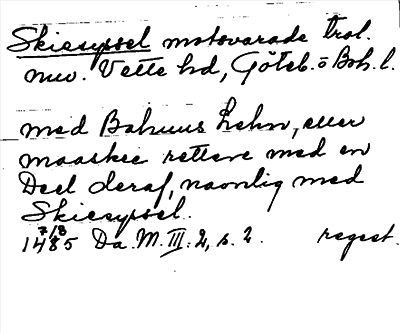 Skiesyssel motsvarade trol.
nuv. Vette hd, Göteb. o Boh. l.
med Bahuus Lehn, eller
maaskee rettere med en
Deel deraf, navnlig med
Skiesyssel.
7/8
1485 Da. M. III: 2, s. 2. regest.